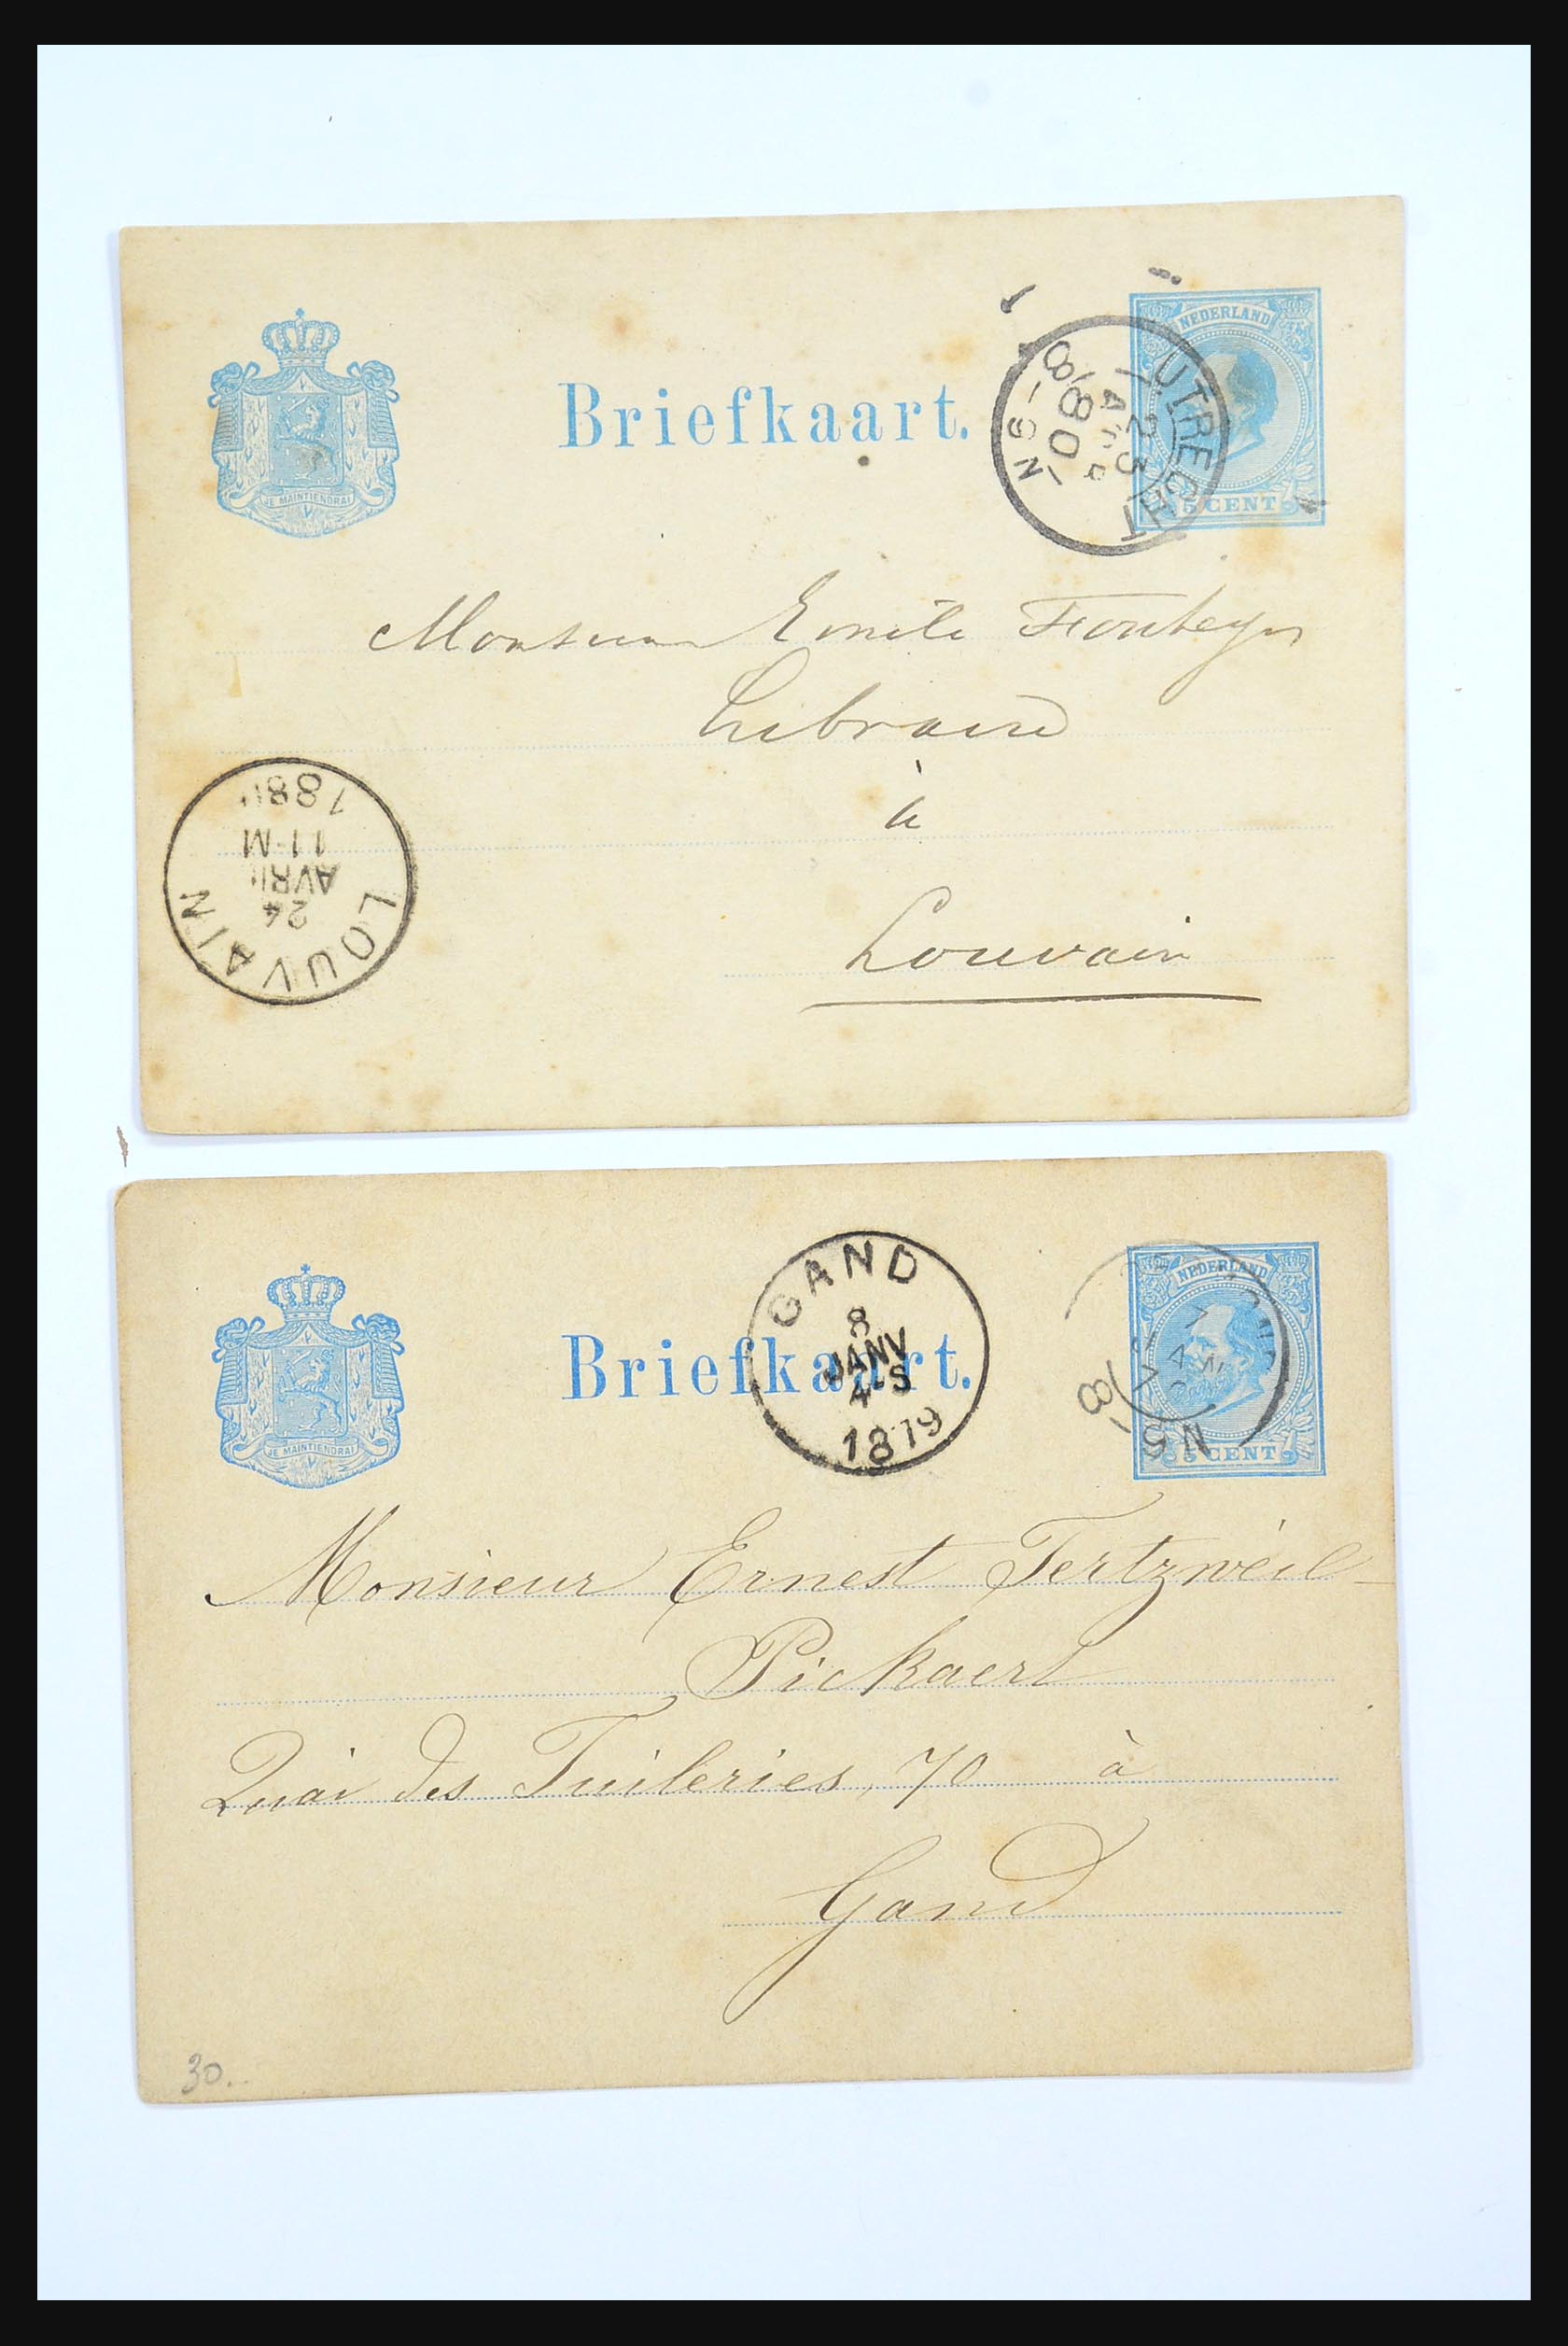 NEDERLAND
5 CENT
JE MAINTIENDRAI
Briefkaart.
UTRECHT
23
APR
80
Monsieur Emile Fonteyn
Libraire
à
Louvain
LOUVAIN
24
AVRIL
11-M
188
NEDERLAND
5 CENT
JE MAINTIENDRAI
Briefkaart.
GAND
8
JANV
4-S
1879
Monsieur Ernest Tertzweil-
Pickaert
Quai des Tuileries, 70 à
Gand
30.